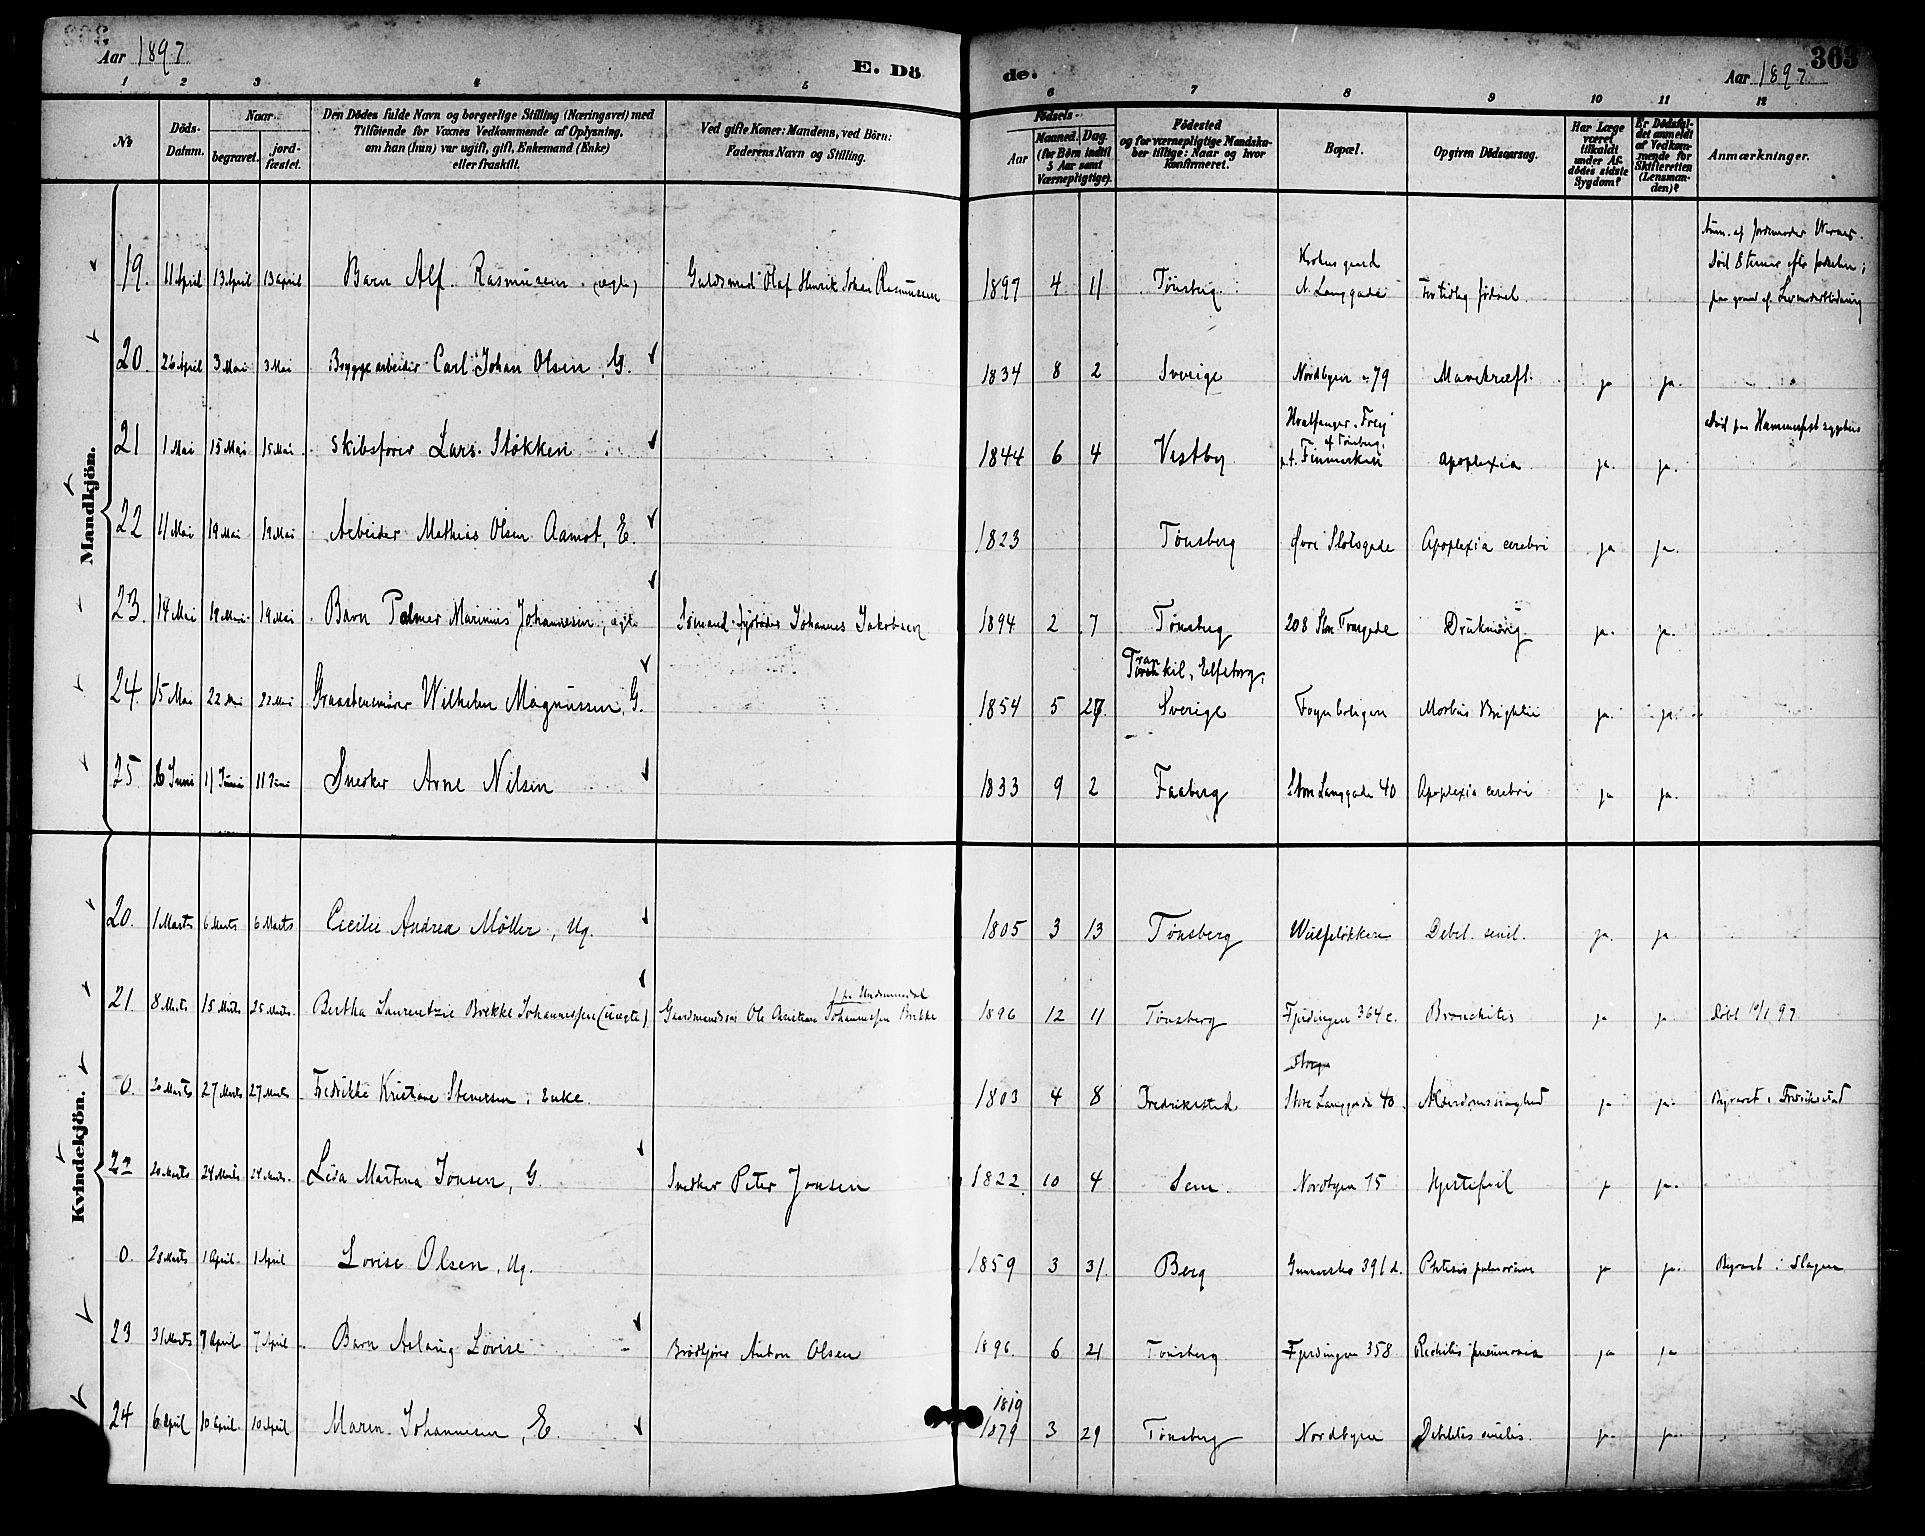 Aar 1897
E. Döde.
363
Aar 1897
1 2 3 4 5 6 7 8 9 10 11 12
No
Döds-Datum.
Naar
begravet.
jordfæstet.
Den Dödes fulde Navn og borgerlige Stilling (Næringsvei) med Tilföiende for Voxnes Vedkommende af Oplysning, om han (hun) var ugift, gift, Enkemand (Enke) eller fraskilt.
Ved gifte Koner: Mandens, ved Börn: Faderens Navn og Stilling.
Födsels-
Aar
Maaned. Dag.
(for Börn indtil 5 Aar samt Værnepligtige).
Födested og for værnepligtige Mandskaber tillige: Naar og hvor konfirmeret.
Bopæl.
Opgiven Dödsaarsag.
Har Læge været tilkaldt under Afdödes sidste Sygdom?
Er Dödsfaldet anmeldt af Vedkommende for Skifteretten (Lensmanden)?
Anmærkninger.
Mandkjön.
19. 11 April 13 April 13 April Barn Alf Rasmussen (ægte) Guldsmed Olaf Henrik Johan Rasmussen 1897 4 11 Tønsberg N. Langgade For tidlig fødsel. Anm. af Jordmoder
20. 26 April 3 Mai 3 Mai Bryggearbeider Carl Johan Olsen, G. 1834 8 2 Sverige Nordbyen 79 Mavekræft. ja ja.
21 1 Mai 15 Mai 15 Mai Skibsfører Lars Støkken 1844 6 4 Vestby Hvalfanger Frey af Tønsberg, p.t. Finmarken apoplexia ja. ja. Død paa Hammerfest sygehus
22 11 Mai 19 Mai 19 Mai Arbeider Mathias Olsen Aamot, E. 1823 Tønsberg Øvre Slotsgade Apoplexia cerebri ja ja.
23. 14 Mai 19 Mai 19 Mai Barn Palmer Marinius Johannesen, ægte Sømand Johannes Jakobsen 1894 2 7 Tønsberg 208 Drukning ja. ja.
24. 15 Mai 22 Mai 22 Mai Wilhelm Magnussen, G. 1854 5 27. Trankil, Elfsborg, Sverige Morbus Brightii ja. ja.
25 6 Juni 11 Juni 11 Juni Snedker Arne Nilsen 1833 9 2 Faaberg Store Langgade 40 Apoplexia cerebri ja ja.
Kvindekjön.
20. 1 Marts 6 Marts 6 Marts Cecilie Andrea Møller, Ug. 1805 3 13 Tønsberg Wulfsløkken Debil. senil. ja. ja
21 8 Marts 15 Marts 25 Marts Bertha Laurentzie Brekke Johannessen (uægte) Gaardmandssøn Ole Johannessen Brekke 1896 12 11 Tønsberg Fjerdingen 364 c. Bronchitis ja ja Døbt 10/1 97
0. 20 Marts 27 Marts 27 Marts Fredrikke Kristiane Stenersen, Enke 1803 4 8 Fredrikstad Store Langgade 40. Alderdomssvaghed ja ja. Begravet i Fredrikstad
22 20 Marts 24 Marts 24 Marts. Lisa Martina Jonsen, G. Snedker Peter Jonsen 1822 10 4 Sem. Nordbyen 75 Hjertefeil ja ja.
0. 28 Marts 1 April 1 April Lovise Olsen, Ug. 1859 3 31. Berg 391 d. Phtisis pulmonum ja ja. Begravet i Slagen
23 31 Marts 7 April 7 April Barn Aslaug Lovise Brødkjører Anton Olsen 1896. 6 21 Tønsberg Fjerdingen 358 Rachitis pneumonia ja ja
24 6 April 10 April 10 April Maren Johannesen, E. 1819 1879 3 29 Tønsberg Nordbyen Debilitas senilis. ja ja